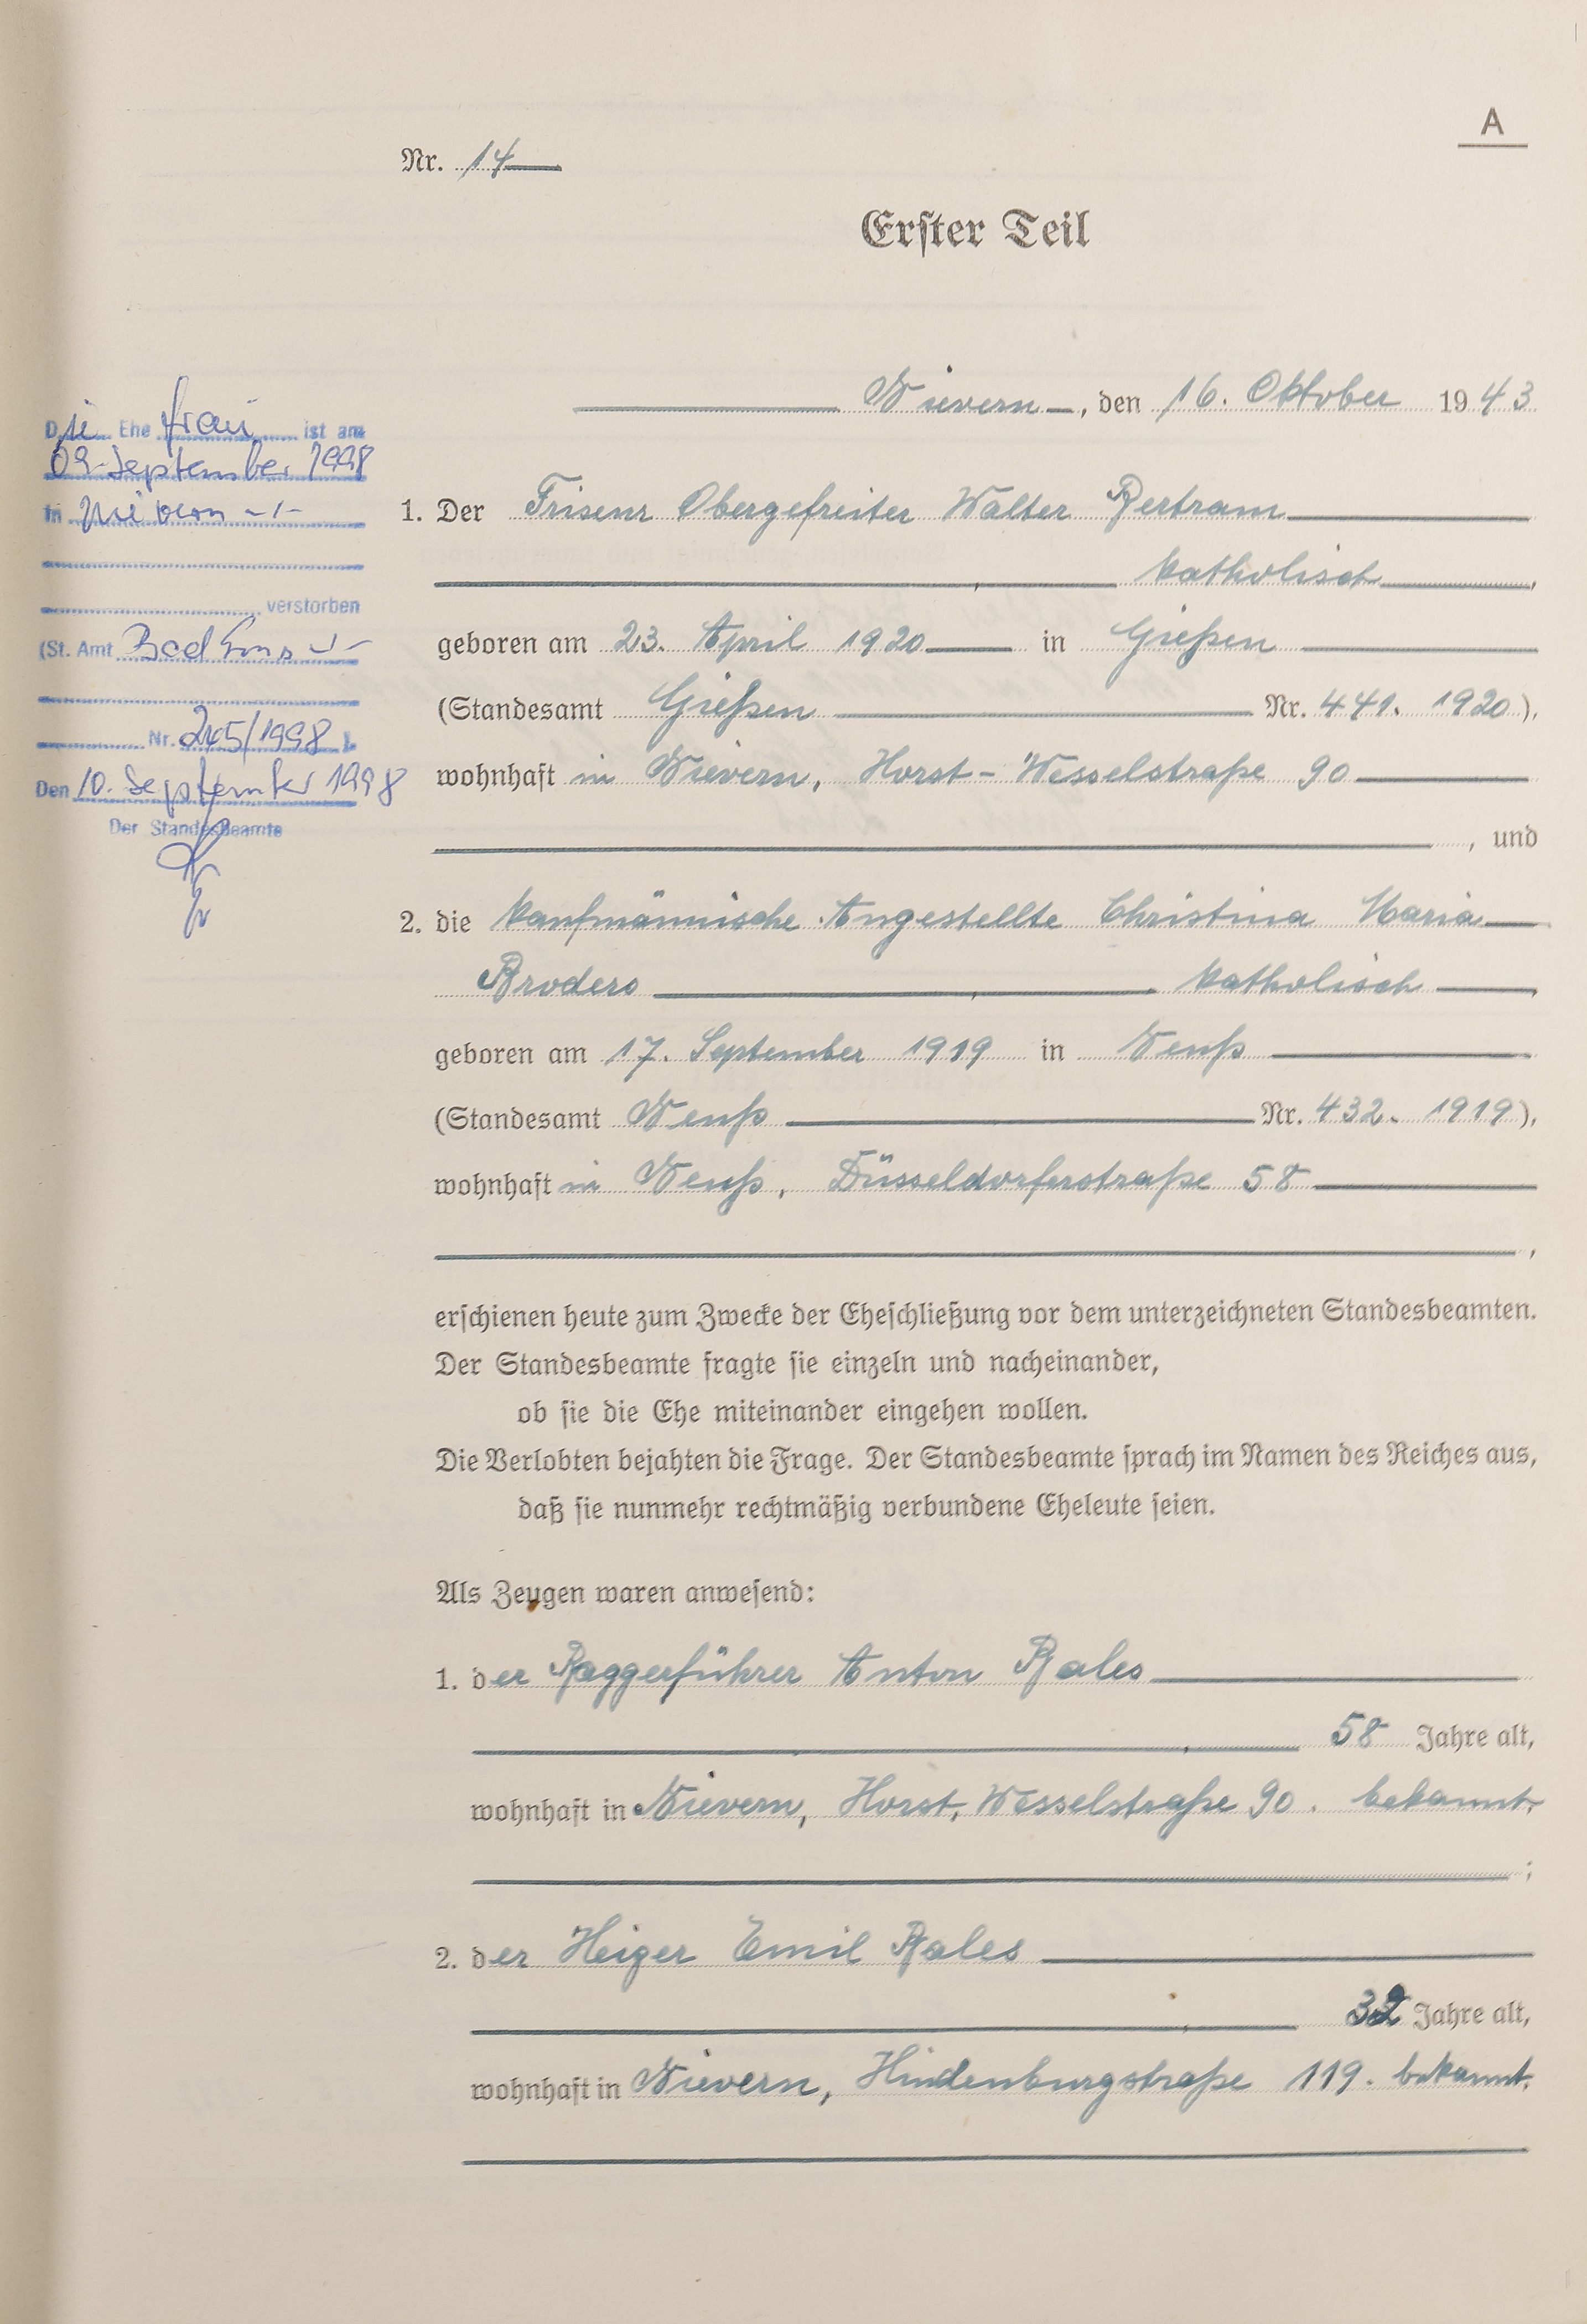 A
Nr. 14
Erster Teil
Nievern, den 16. Oktober 1943
Die Ehe frau ist am
09. September 1998
in Nievern -/-
verstorben
(St. Amt Bad Ems -/-
Nr. 245/1998 ).
Den 10. September 1998
Der Standesbeamte
1. Der Friseur Obergefreiter Walter Bertram
, katholisch,
geboren am 23. April 1920 in Gießen
(Standesamt Gießen Nr. 441. 1920),
wohnhaft in Nievern, Horst-Wesselstraße 90
, und
2. die kaufmännische Angestellte Christina Maria
Broders, katholisch,
geboren am 17. September 1919 in Neuß
(Standesamt Neuß Nr. 432. 1919),
wohnhaft in Neuß, Düsseldorferstraße 58
,
erschienen heute zum Zwecke der Eheschließung vor dem unterzeichneten Standesbeamten.
Der Standesbeamte fragte sie einzeln und nacheinander,
ob sie die Ehe miteinander eingehen wollen.
Die Verlobten bejahten die Frage. Der Standesbeamte sprach im Namen des Reiches aus,
daß sie nunmehr rechtmäßig verbundene Eheleute seien.
Als Zeugen waren anwesend:
1. der Baggerführer Anton Bales
, 58 Jahre alt,
wohnhaft in Nievern, Horst, Wesselstraße 90. bekannt.
;
2. der Heizer Emil Bales
, 32 Jahre alt,
wohnhaft in Nievern, Hindenburgstraße 119. bekannt.